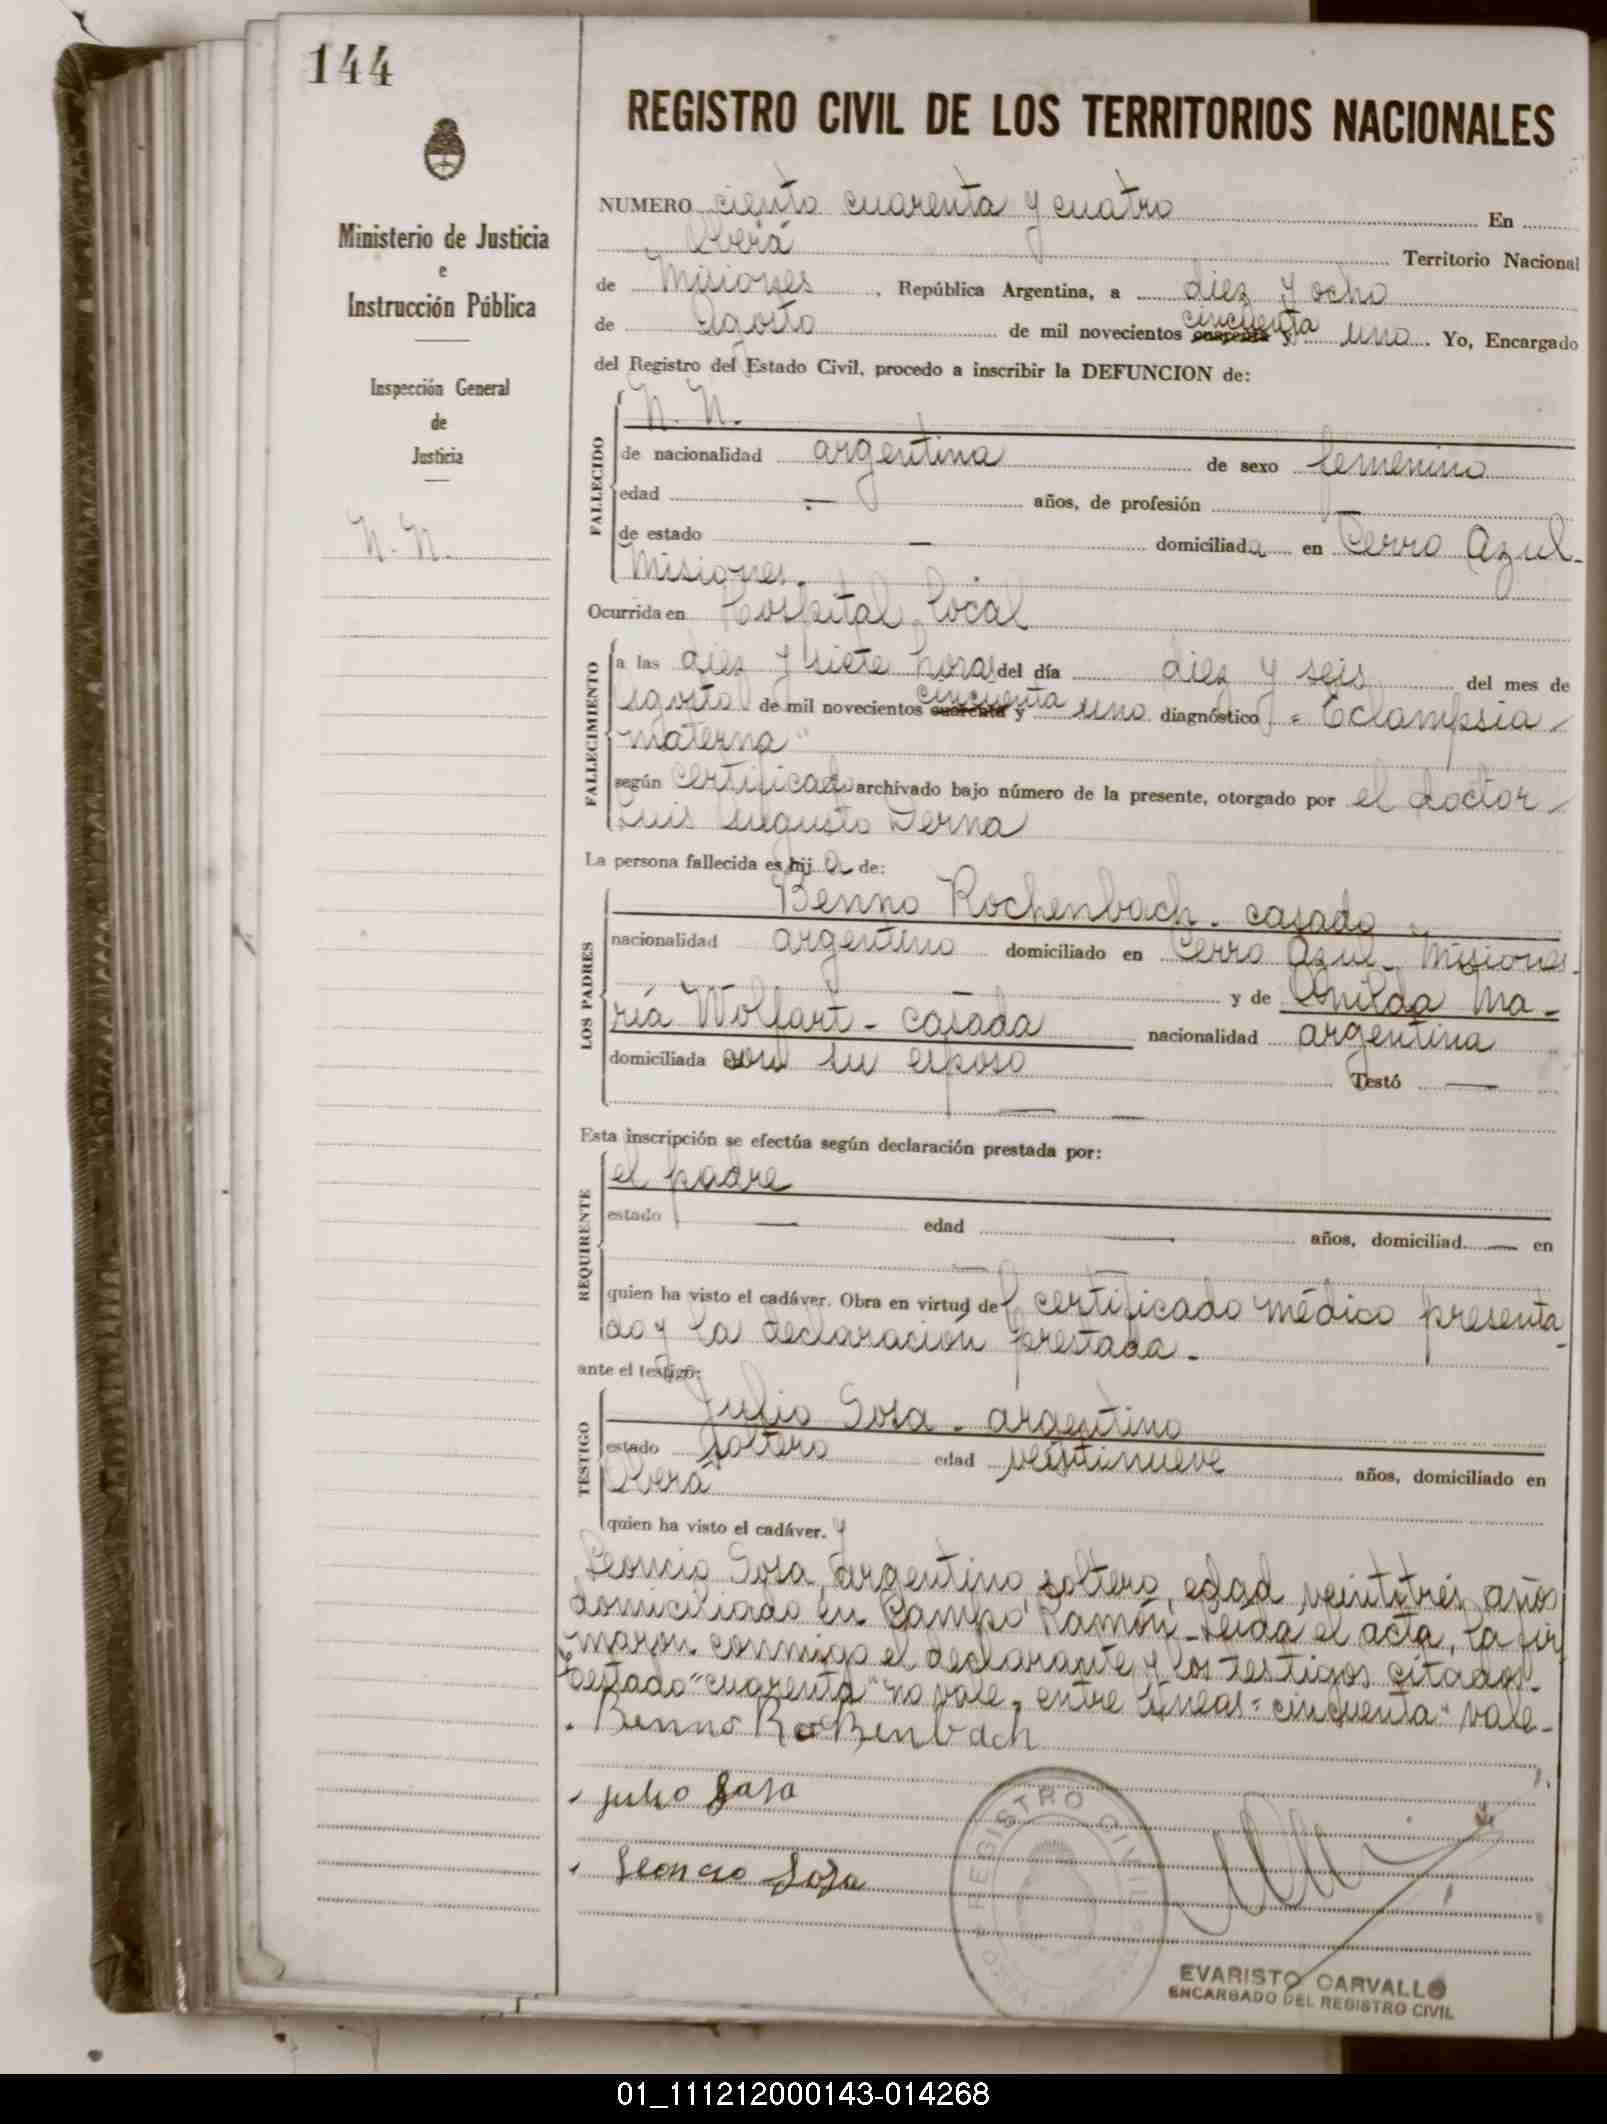 144
REGISTRO CIVIL DE LOS TERRITORIOS NACIONALES
Ministerio de Justicia
e
Instrucción Pública
Inspección General
de
Justicia
N. N.
NUMERO ciento cuarenta y cuatro En
Oberá Territorio Nacional
de Misiones, República Argentina, a diez y ocho
de Agosto de mil novecientos cuarenta y cincuenta uno. Yo, Encargado
del Registro del Estado Civil, procedo a inscribir la DEFUNCION de:
FALLECIDO
N. N.
de nacionalidad argentina de sexo femenino
edad — años, de profesión —
de estado — domiciliada en Cerro Azul-
Misiones.
Ocurrida en Hospital local
FALLECIMIENTO
a las diez y siete horas del día diez y seis del mes de
agosto de mil novecientos cuarenta y cincuenta uno diagnóstico = Eclampsia
materna"
según certificado archivado bajo número de la presente, otorgado por el doctor
Luis Augusto Derna
La persona fallecida es hija de:
LOS PADRES
Benno Rochenbach - casado -
nacionalidad argentino domiciliado en Cerro Azul - Misiones.
— y de Anilda Ma-
ría Wolfart - casada nacionalidad argentina
domiciliada con su esposo Testó —
— —
Esta inscripción se efectúa según declaración prestada por:
REQUIRENTE
el padre
estado — edad — años, domiciliad — en
— —
quien ha visto el cadáver. Obra en virtud del certificado médico presenta-
do y la declaración prestada.-
ante el testigo:
TESTIGO
Julio Sosa - argentino
estado soltero edad veintinueve años, domiciliado en
Oberá
quien ha visto el cadáver. y
Leoncio Sosa, argentino, soltero, edad veintitrés años
domiciliado en Campo Ramón - Leída el acta, la fir
maron conmigo el declarante y los testigos citados.-
Testado "cuarenta" no vale, entre líneas = cincuenta" vale-
Benno Roßenbach
julio Sosa
Leoncio Sosa
REGISTRO CIVIL
EVARISTO CARVALLO
ENCARGADO DEL REGISTRO CIVIL
01_111212000143-014268